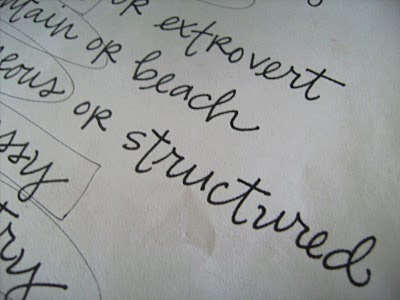 or extrovert
ntain or beach
eous or structured
ssy
try